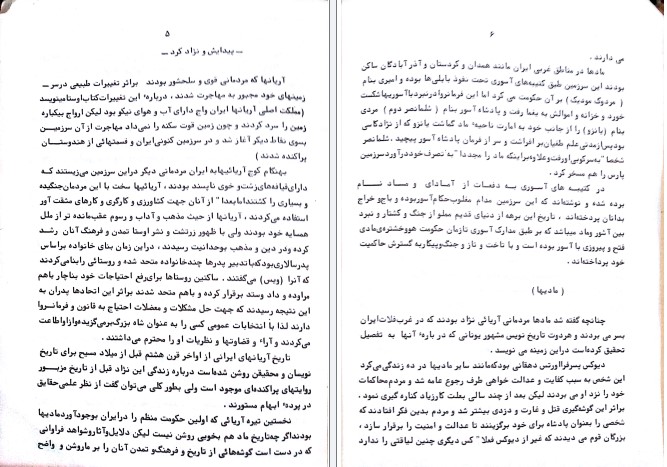 ۵
ــ پیدایش و نژاد کرد ــ
آریانها که مردمانی قوی و سلحشور بودند براثر تغییرات طبیعی درسر ــ
زمینهای خود مجبور به مهاجرت شدند ، درباره این تغییرات‌کتاب‌اوستا‌مینویسد
(مملکت اصلی آریانها ایران واج دارای آب و هوای نیکو بود لیکن ارواح بیکباره
زمین را سرد کردند و چون زمین قوت سکنه را نمی‌داد مهاجرت از آن سرزمین
بسوی نقاط دیگر آغاز شد و در سرزمین کنونی‌ایران و قسمتهائی از هندوستان
پراکنده شدند )
بهنگام کوچ آریائیهابه ایران مردمانی دیگر در این سرزمین می‌زیستند که
دارای‌قیافه‌های‌زشت‌و خوی ناپسند بودند ، آریائیها سخت با این مردمان‌جنگیده
و بسیاری را کشتنداما‌بعدا" از آنان جهت کشاورزی و کارگری و کارهای مثقت آور
استفاده می‌کردند ، آریانها از حیث مذهب و آداب و رسوم عقب‌مانده تر از ملل
همسایه خود بودند ولی با ظهور زرتشت و نشر اوستا تمدن و فرهنگ آنان رشد
کرده ودر دین و مذهب بوحدانیت رسیدند ، دراین زمان بنای خانواده براساس
پدرسالاری‌بودکه‌باتدبیر پدرها چندخانواده متحد شده و روستائی رابنامی‌کردند
که آنرا (ویس) می‌گفتند . ساکنین روستاها برای‌رفع احتیاجات خود بناچار باهم
مراوده و داد وستد برقرار کرده و باهم متحد شدند براثر این اتحادها پدران به
این نتیجه رسیدند که جهت حل مشکلات و معضلات احتیاج به قانون و فرمانروا
دارند لذا با انتخابات عمومی کسی را به عنوان شاه بزرگ‌برمی‌گزیده‌وازاواطاعت
می‌کردند و آراء و قضاوتها و نظریات او را محترم می‌داشتند .
تاریخ آریانهای ایرانی از اواخر قرن هشتم قبل از میلاد مسیح برای تاریخ
نویسان و محققین روشن شده‌است درباره زندگی این نژاد قبل از تاریخ مزبور
روایتهای پراکنده‌ای موجود است ولی بطور کلی می‌توان گفت از نظر علمی‌حقایق
در پرده ابهام مستورند .
نخستین تیره آریائی که اولین حکومت منظم را درایران بوجودآورد‌مادیها
بودند‌اگر چه‌تاریخ ماد هم بخوبی روشن نیست لیکن دلایل‌وآثارو‌شواهد فراوانی
که در دست است گوشه‌هائی از تاریخ و فرهنگ‌و تمدن آنان را بر ماروشن و واضح
۶
می دارند .
مادها در مناطق غربی ایران مانند همدان و کردستان و آذرآبادگان ساکن
بودند این سرزمین طبق کتیبه‌های آسوری تحت نفوذ بابلی‌ها بوده و امیری بنام
( مردوک مودیک ) بر آن حکومت می کرد اما این فرمانروادرنبردباآسوریهاشکست
خورد و خزانه و اموالش به یغما رفت و پادشاه آسور بنام ( شلمانصر دوم ) مردی
بنام (یانزو) را از جانب خود به امارت ناحیه ماد گماشت یانزو که از نژادکاسی
بودپس‌از‌مدتی‌علم طغیان‌بر‌افراشت و سر از فرمان پادشاه آسور پیچید . شلمانصر
شخصا "به‌سرکوبی‌اورفت‌وعلاوه‌براینکه ماد را مجددا "به تصرف‌خوددرآوردسرزمین
پارس را هم مسخر کرد .
در کتیبه های آسوری به دفعات از آمادای و ماد نام
برده شده و نوشته‌اند که این سرزمین مدام مغلوب‌حکام‌آسوربوده و باج‌و خراج
بدانان پرداخته‌اند ، تاریخ این برهه از دنیای قدیم مملو از جنگ و کشتار و نبرد
بین آشور وماد میباشد که بر طبق مدارک آسوری تازمان حکومت هووخشتره‌ی‌مادی
فتح و پیروزی با آسور بوده است و با تاخت و تاز و جنگ‌وپیکاربه گسترش حاکمیت
خود پرداخته‌اند .
( مادیها )
چنانچه گفته شد مادها مردمانی آریائی نژاد بودند که در غرب‌فلات‌ایران
بسر می بردند و هردوت تاریخ نویس مشهور یونانی که در باره آنها به تفصیل
تحقیق کرده‌است دراین زمینه می نویسد .
دیوکس پسرفرااورتس دهقانی بودکه‌مانند سایر مادیها در ده زندگی‌می‌کرد
این شخص به سبب کفایت و عدالت خواهی طرف رجوع عامه شد و مردم‌محاکمات
خود را نزد او می بردند لیکن بعد از چند سالی بعلت کارزیاد کناره گیری نمود .
براثر این گوشه‌گیری قتل و غارت و دزدی بیشتر شد و مردم بدین فکر افتادند که
شخصی را بعنوان پادشاه برای خود برگزینند تا عدالت و امنیت را برقرار سازد ،
بزرگان قوم می دیدند که غیر از دیوکس فعلا " کس دیگری چنین لیاقتی را ندارد